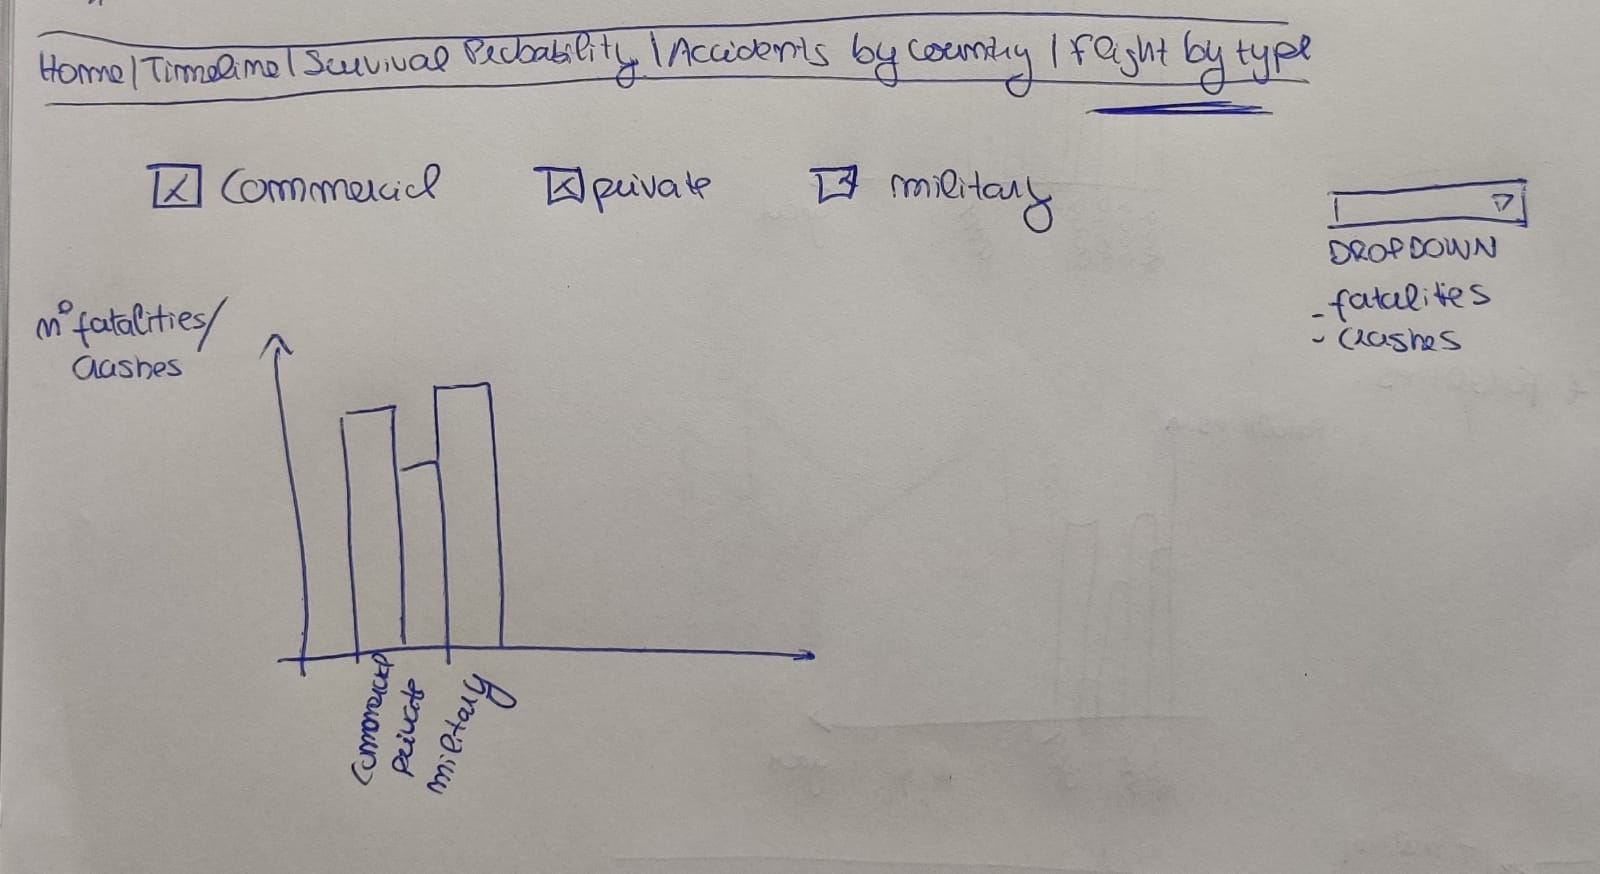 Home | Timeline | Survival Probability | Accidents by country | flight by type
Commercial private military
DROPDOWN
- fatalities
- crashes
n° fatalities/
crashes
Commercial
private
military